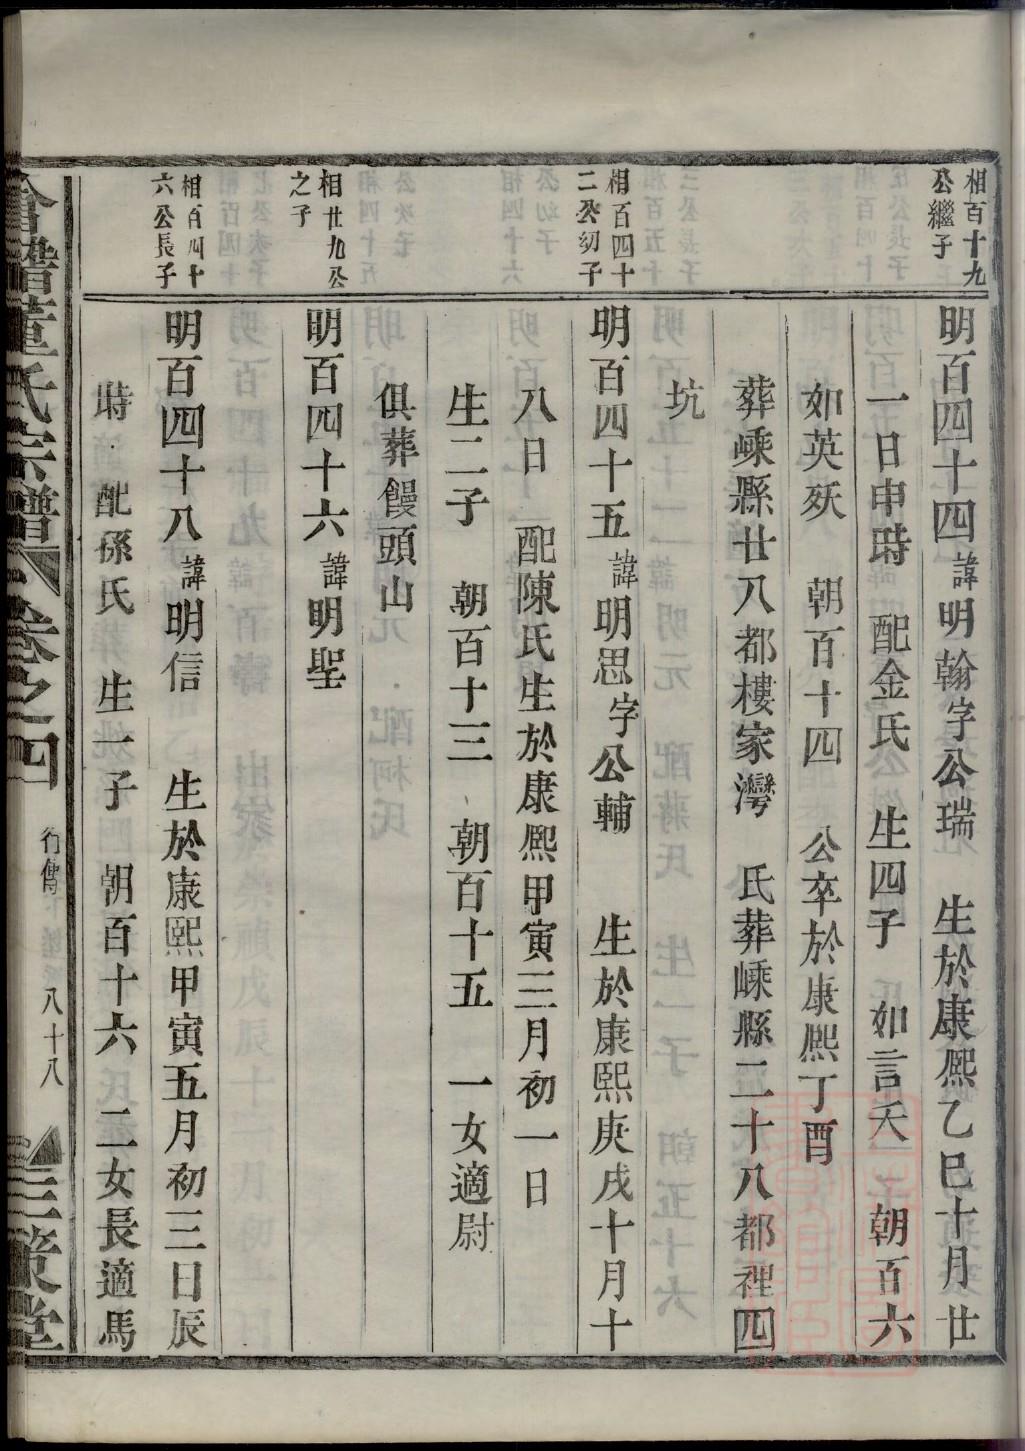 相百十九
公繼子
明百四十四諱明翰字公瑞 生於康熙乙巳十月廿
一日申時 配金氏 生四子 如言夭 朝百六
如英殀 朝百十四 公卒於康熙丁酉
葬嵊縣廿八都樓家灣 氏葬嵊縣二十八都裡四
坑
相百四十
二公幼子
明百四十五諱明思字公輔 生於康熙庚戌十月十
八日 配陳氏生於康熙甲寅三月初一日
生二子 朝百十三 朝百十五 一女適尉
俱葬饅頭山
相廿九公
之子
明百四十六諱明聖
相百四十
六公長子
明百四十八諱明信 生於康熙甲寅五月初三日辰
時 配孫氏 生一子 朝百十六 二女長適馬
董氏宗譜 卷之四 行傳 八十八 三策堂